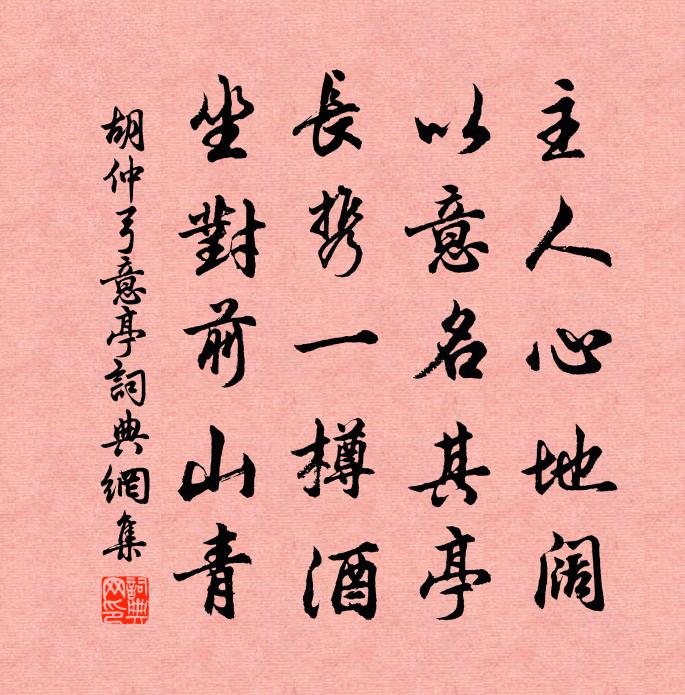 主人心地阔
以意名其亭
長携一樽酒
坐對前山青
胡仲弓意亭詞典網集
詞典網印